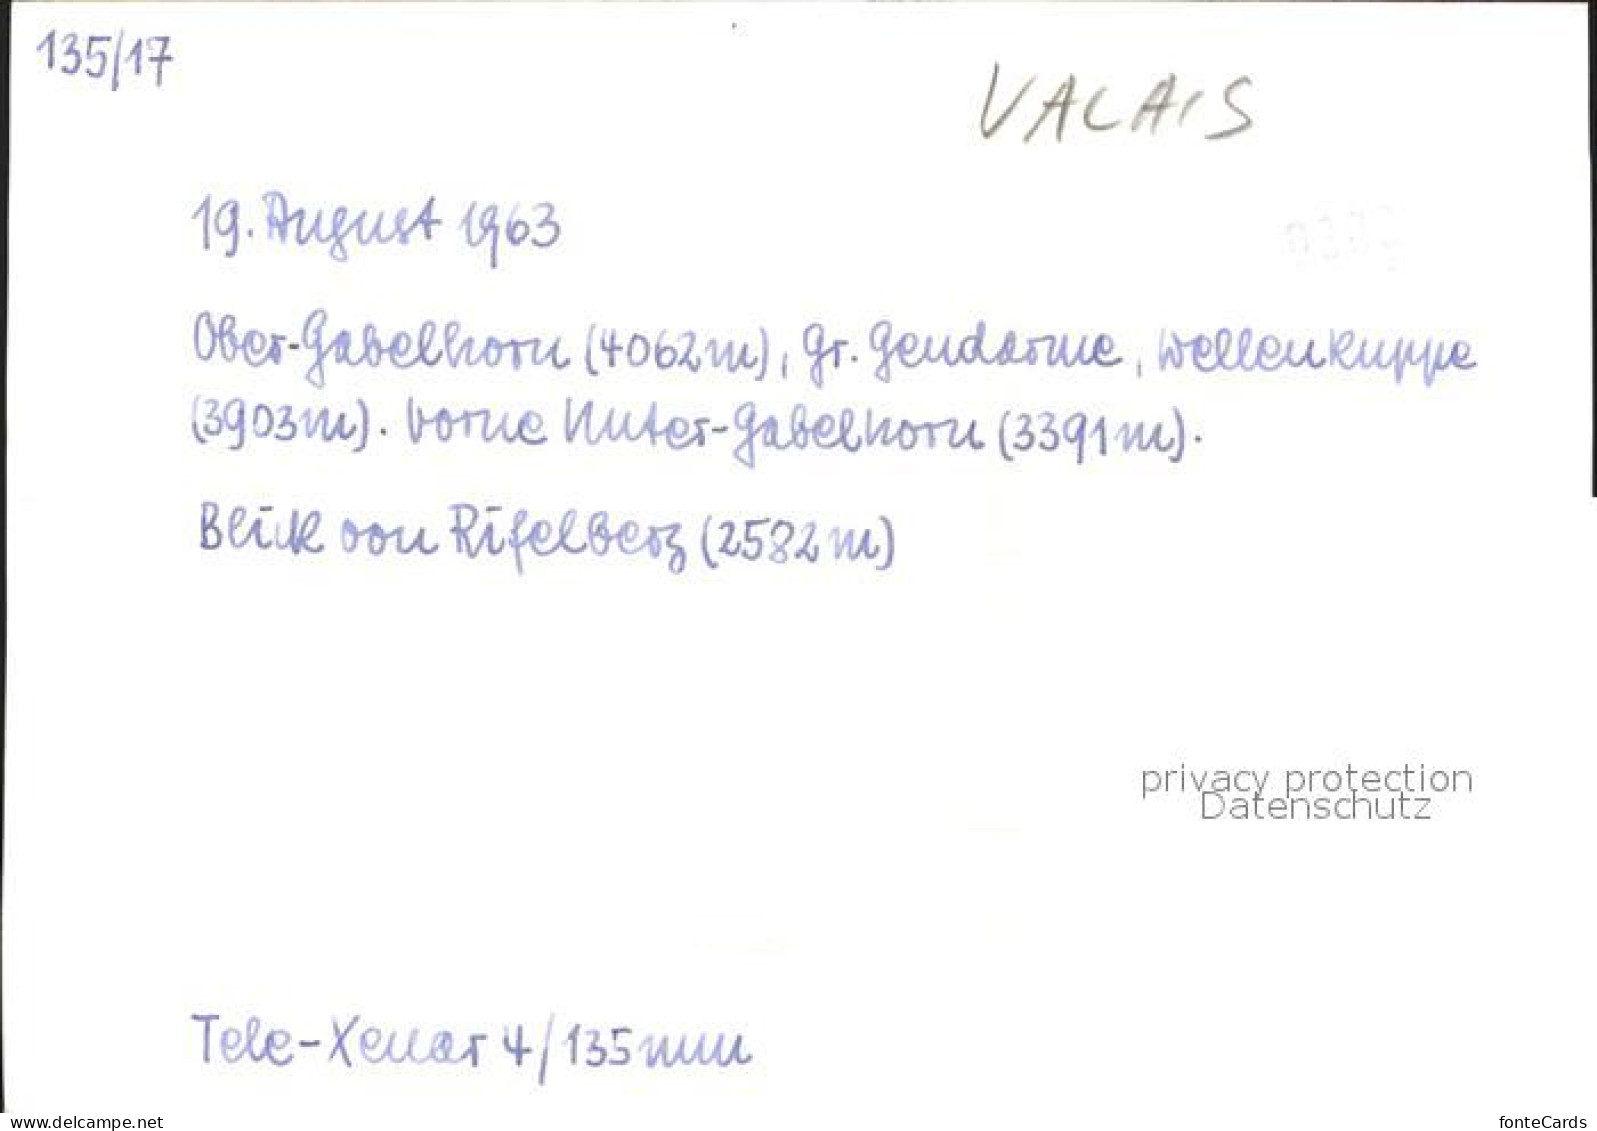 135/17
VALAIS
19. August 1963
Ober-Gabelhorn (4062m), Gr. Gendarme, Wellenkuppe
(3903m). Vorne Unter-Gabelhorn (3391m).
Blick von Rifelberg (2582m)
privacy protection
Datenschutz
Tele-Xenar 4/135mm
www.delcampe.net
fonteCards